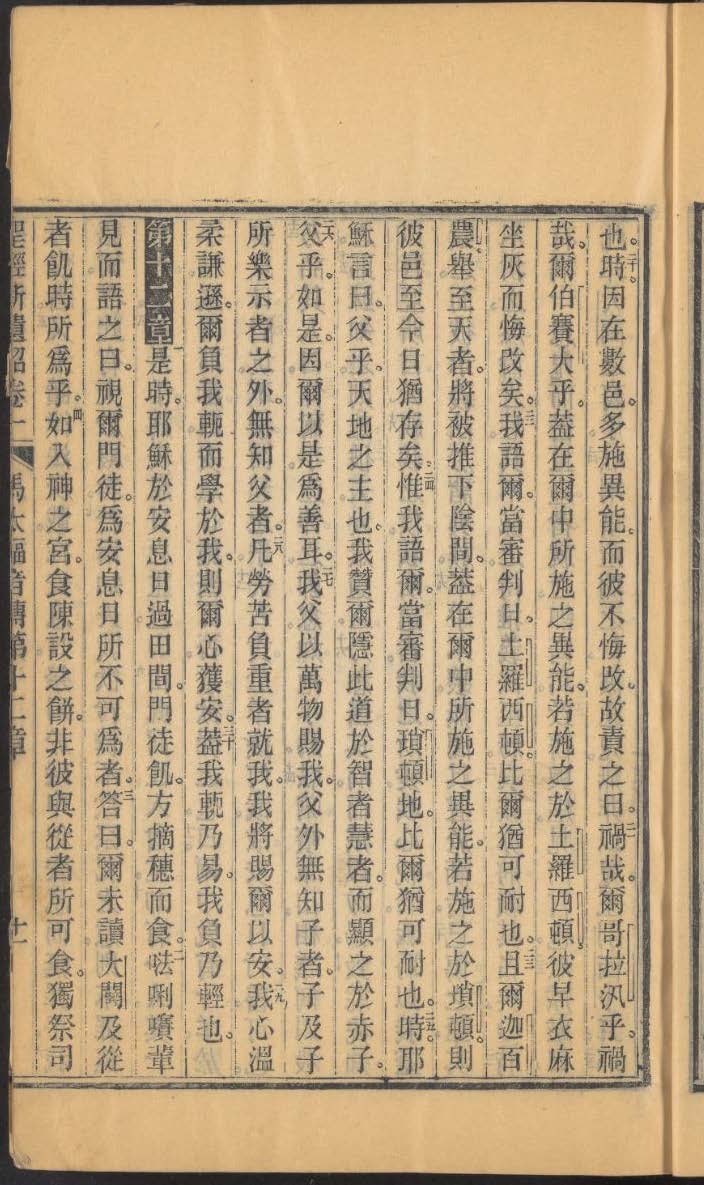 也。二十時因在數邑。多施異能。而彼不悔改。故責之曰。二一禍哉。爾哥拉汛乎。禍
哉。爾伯賽大乎。蓋在爾中所施之異能。若施之於土羅西頓。彼早衣麻
坐灰而悔改矣。二二我語爾。當審判日。土羅西頓。比爾猶可耐也。二三且爾迦百
農。舉至天者。將被推下陰間。蓋在爾中所施之異能。若施之於瑣頓。則
彼邑至今日猶存矣。二四惟我語爾。當審判日。瑣頓地。比爾猶可耐也。二五時。耶
穌言曰。父乎。天地之主也。我贊爾隱此道於智者慧者。而顯之於赤子。
二六父乎。如是。因爾以是爲善耳。二七我父以萬物賜我。父外無知子者。子及子
所樂示者之外。無知父者。二八凡勞苦負重者就我。我將賜爾以安。二九我心溫
柔謙遜。爾負我軛而學於我。則爾心獲安。三十蓋我軛乃易。我負乃輕也。
第十二章一是時。耶穌於安息日過田間。門徒飢。方摘穗而食。二㕸唎㘔輩
見而語之曰。視爾門徒。爲安息日所不可爲者。三答曰。爾未讀大闢及從
者飢時所爲乎。四如入神之宮。食陳設之餅。非彼與從者所可食。獨祭司
聖經新遺詔卷一 馬太福音傳第十二章 十一